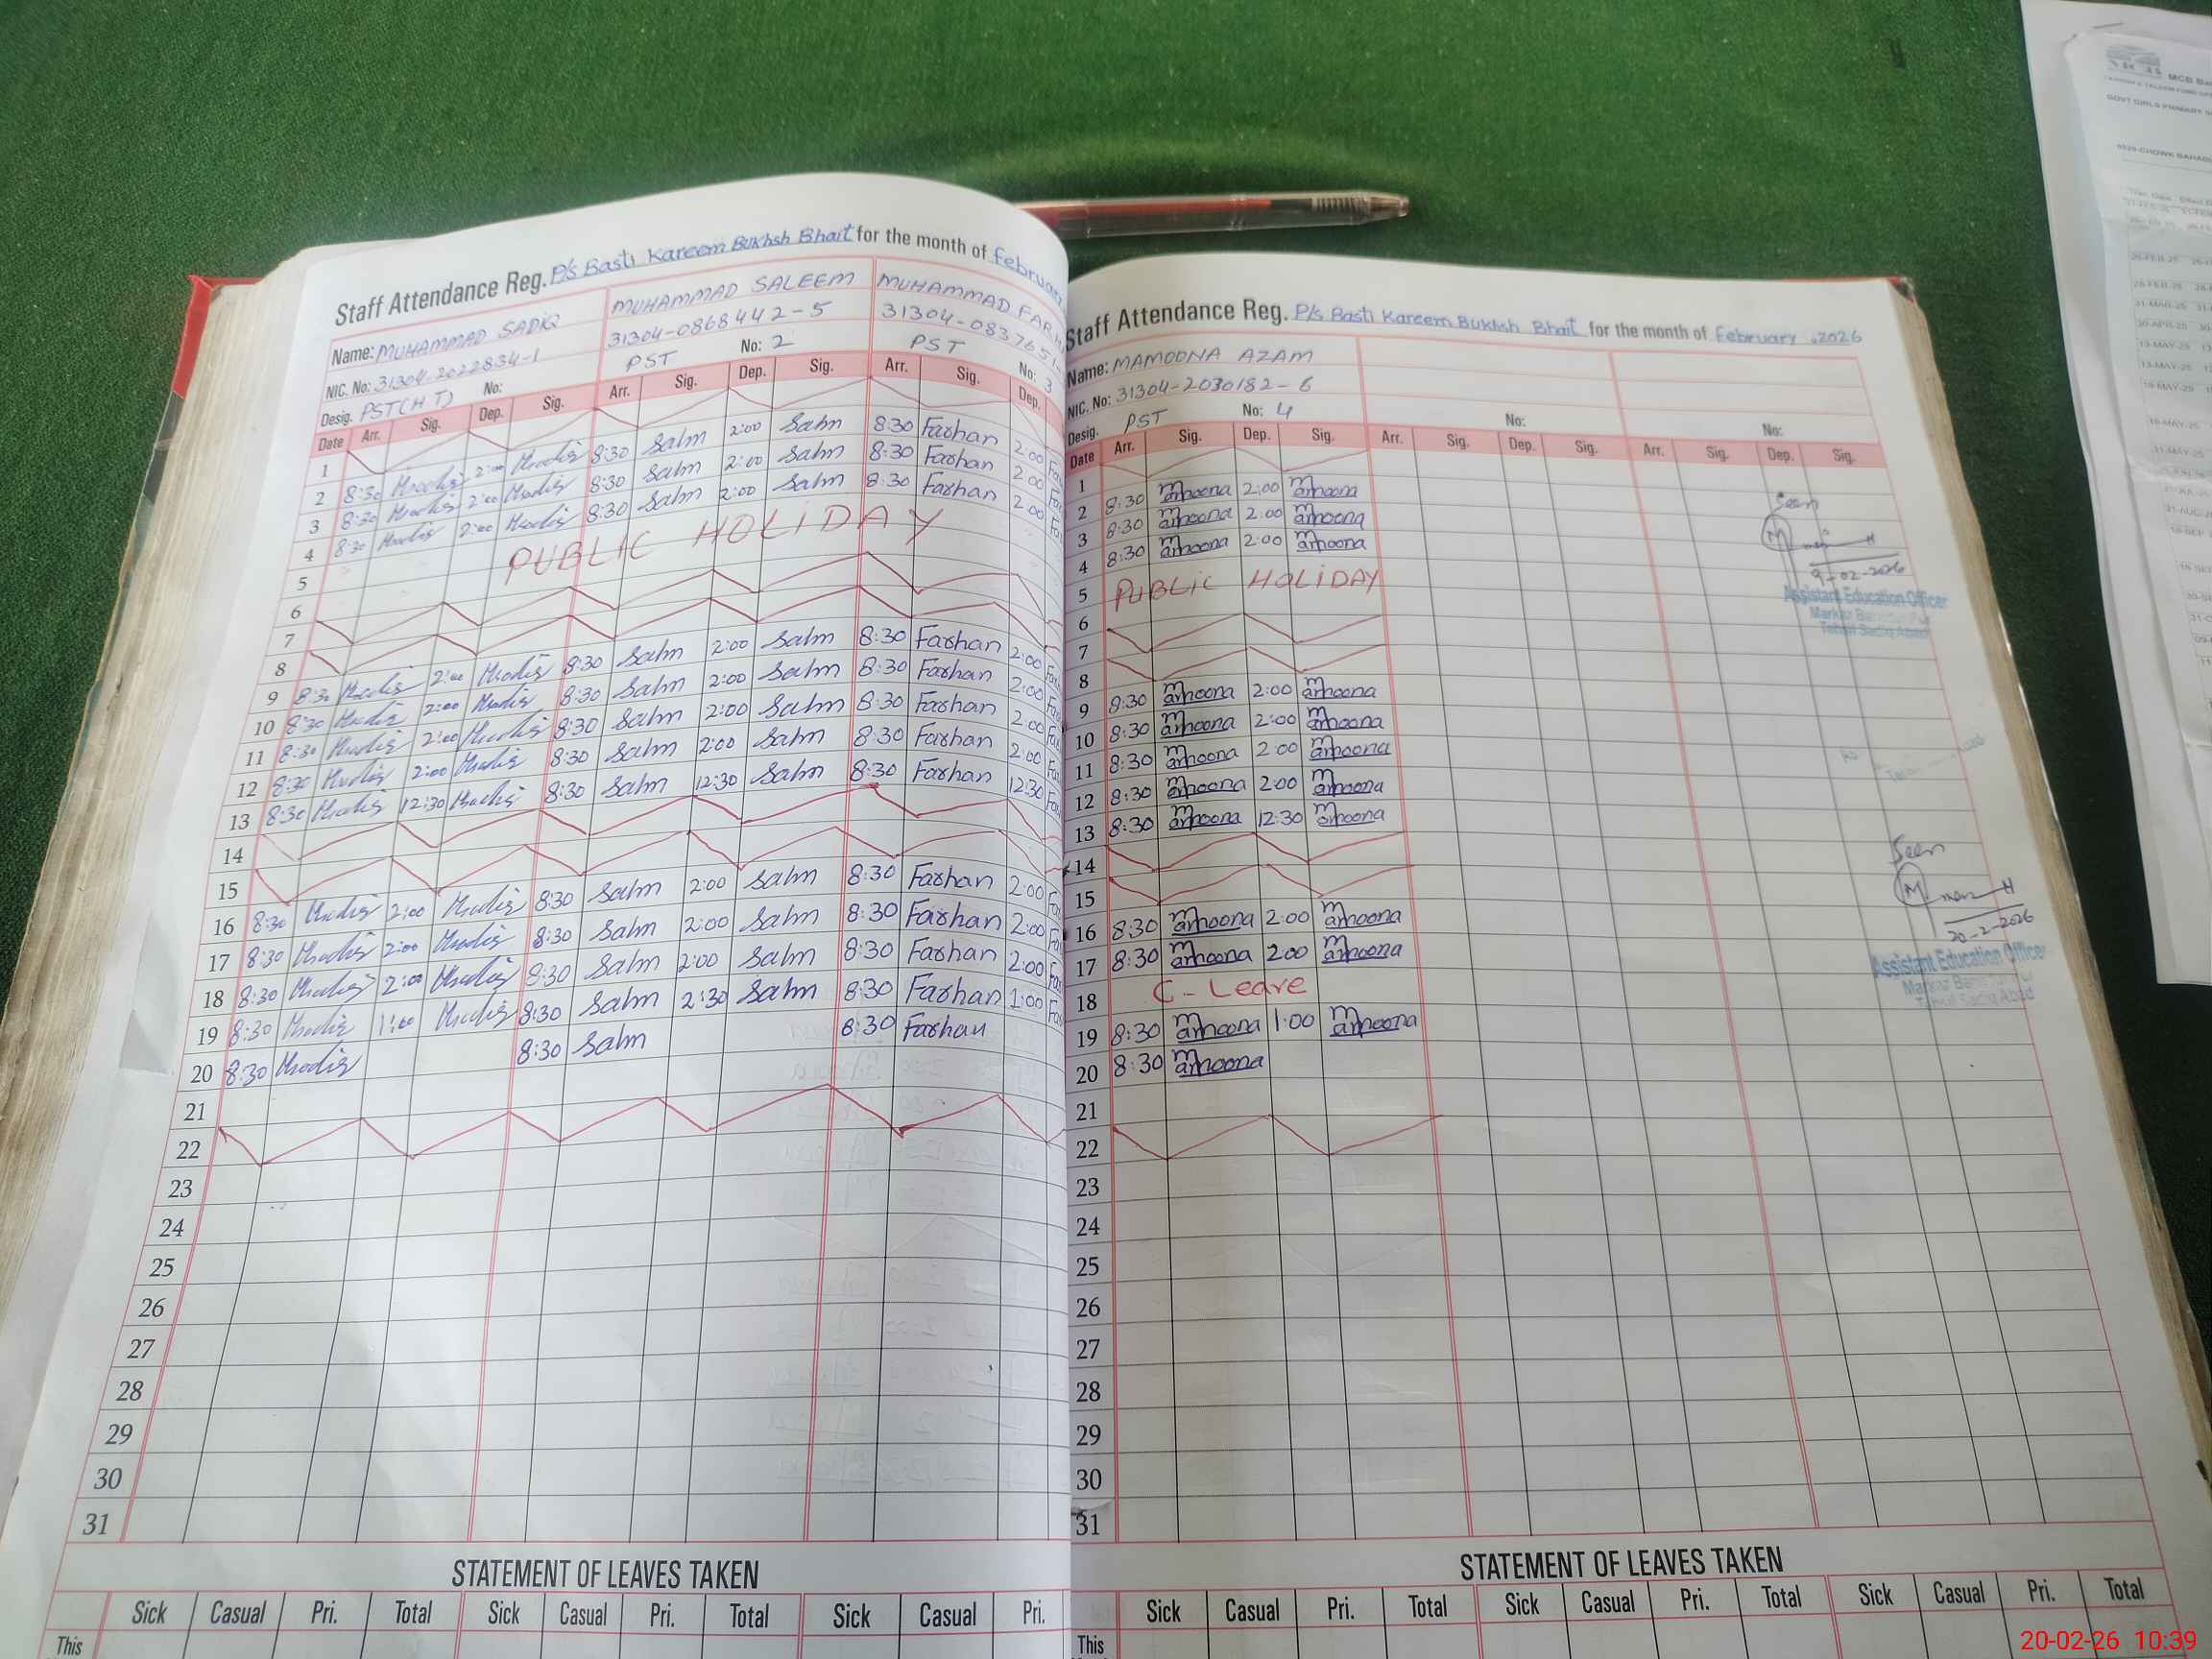 Staff Attendance Reg. P/s Basti Kareem Bukhsh Bhait for the month of February
Name: MUHAMMAD SADIQ MUHAMMAD SALEEM MUHAMMAD FARH
NIC. No: 31304-2022834-1 31304-0868442-5 31304-0837651-
Desig. PST(HT) No: PST No: 2 PST No: 3
Date Arr. Sig. Dep. Sig. Arr. Sig. Dep. Sig. Arr. Sig. Dep.
1
2 8:30 2:00 8:30 Salm 2:00 Salm 8:30 Farhan 2:00
3 8:30 2:00 8:30 Salm 2:00 Salm 8:30 Farhan 2:00
4 8:30 2:00 8:30 Salm 2:00 Salm 8:30 Farhan 2:00
5 PUBLIC HOLIDAY
6
7
8
9 8:30 2:00 8:30 Salm 2:00 Salm 8:30 Farhan 2:00
10 8:30 2:00 8:30 Salm 2:00 Salm 8:30 Farhan 2:00
11 8:30 2:00 8:30 Salm 2:00 Salm 8:30 Farhan 2:00
12 8:30 2:00 8:30 Salm 2:00 Salm 8:30 Farhan 2:00
13 8:30 12:30 8:30 Salm 12:30 Salm 8:30 Farhan 12:30
14
15
16 8:30 2:00 8:30 Salm 2:00 Salm 8:30 Farhan 2:00
17 8:30 2:00 8:30 Salm 2:00 Salm 8:30 Farhan 2:00
18 8:30 2:00 8:30 Salm 2:00 Salm 8:30 Farhan 2:00
19 8:30 1:00 8:30 Salm 2:30 Salm 8:30 Farhan 1:00
20 8:30 8:30 Salm 8:30 Farhan
21
22
23
24
25
26
27
28
29
30
31
STATEMENT OF LEAVES TAKEN
Sick Casual Pri. Total Sick Casual Pri. Total Sick Casual Pri.
This
Staff Attendance Reg. P/s Basti Kareem Bukhsh Bhait for the month of February ,2026
Name: MAMOONA AZAM
NIC. No: 31304-2030182-6
Desig. PST No: 4 No: No:
Date Arr. Sig. Dep. Sig. Arr. Sig. Dep. Sig. Arr. Sig. Dep. Sig.
1
2 8:30 mamoona 2:00 mamoona
3 8:30 mamoona 2:00 mamoona
4 8:30 mamoona 2:00 mamoona
5 PUBLIC HOLIDAY
6
7
8
9 8:30 mamoona 2:00 mamoona
10 8:30 mamoona 2:00 mamoona
11 8:30 mamoona 2:00 mamoona
12 8:30 mamoona 2:00 mamoona
13 8:30 mamoona 12:30 mamoona
14
15
16 8:30 mamoona 2:00 mamoona
17 8:30 mamoona 2:00 mamoona
18 C-Leave
19 8:30 mamoona 1:00 mamoona
20 8:30 mamoona
21
22
23
24
25
26
27
28
29
30
31
Seen
9-02-2026
Assistant Education Officer
Markaz
Tehsil Sadiq Abad
Seen
20-2-2026
Assistant Education Officer
Markaz
Tehsil Sadiq Abad
STATEMENT OF LEAVES TAKEN
Sick Casual Pri. Total Sick Casual Pri. Total Sick Casual Pri. Total
This
MCB
GOVT GIRLS PRIMARY
20-02-26 10:39